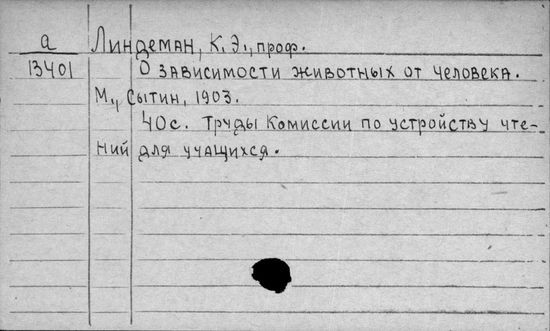 а Линдеман, К. Э., проф.
13401 О зависимости животных от человека.
М., Сытин, 1903.
40с. Труды Комиссии по устройству чте-
ний для учащихся.